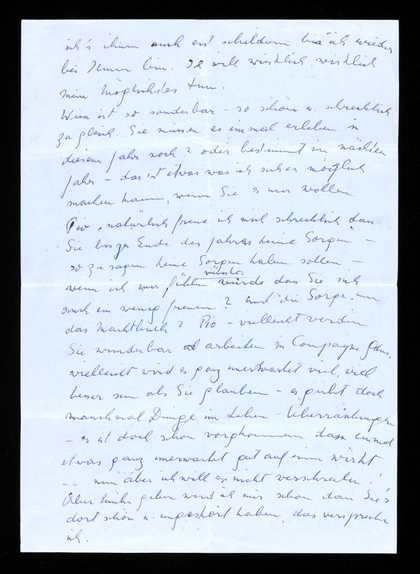 ich's ihnen auch erst schildern bis ich wieder
bei Ihnen bin. Ich will wirklich wirklich
mein Möglichstes tun.
Wien ist so sonderbar – so schön u. schrecklich
zugleich. Sie müssen es einmal erleben in
diesem Jahr noch? oder bestimmt im nächsten
Jahr – das ist etwas was ich sicher möglich
machen kann, wenn Sie es nur wollen
Pio, natürlich freue ich mich schrecklich dass
Sie bis zu Ende des Jahres keine Sorgen –
so zu sagen keine Sorgen haben sollen –
wenn ich nur fühlen würde das Sie sich
auch ein wenig freuen? und die Sorge um
das Buch? Pio – vielleicht werden
Sie wunderbar arbeiten in Compagne
vielleicht wird es ganz unerwartet viel, viel
besser sein als Sie glauben – es gibt doch
manchmal Dinge im Leben – Überraschungen
– es ist doch schon vorgekommen dass einmal
etwas ganz unerwartet gut auf einen wirkt
-- nun aber ich will es nicht verschreien!
Aber Mühe geben werd ich mir schon dass Sie's
dort schön u. ungestört haben, das verspreche
ich.